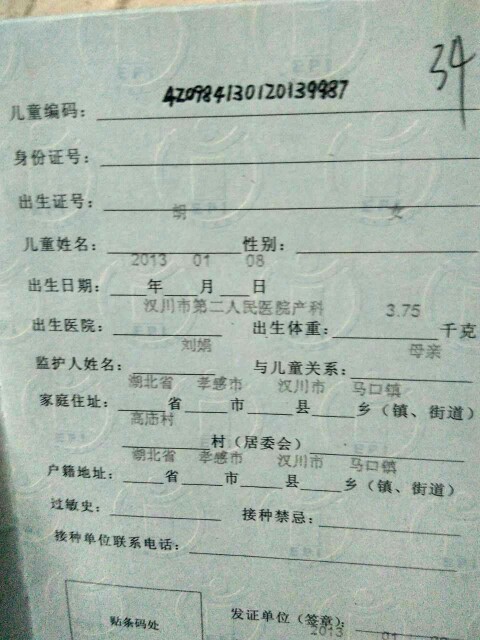 34
儿童编码：420984130120139987
身份证号：
出生证号：
胡 女
儿童姓名： 性别：
2013 01 08
出生日期： 年 月 日
汉川市第二人民医院产科 3.75
出生医院： 出生体重： 千克
刘娟 母亲
监护人姓名： 与儿童关系：
湖北省 孝感市 汉川市 马口镇
家庭住址： 省 市 县 乡（镇、街道）
高庙村
村（居委会）
湖北省 孝感市 汉川市 马口镇
户籍地址： 省 市 县 乡（镇、街道）
过敏史： 接种禁忌：
接种单位联系电话：
贴条码处 发证单位（签章）：
2013 01